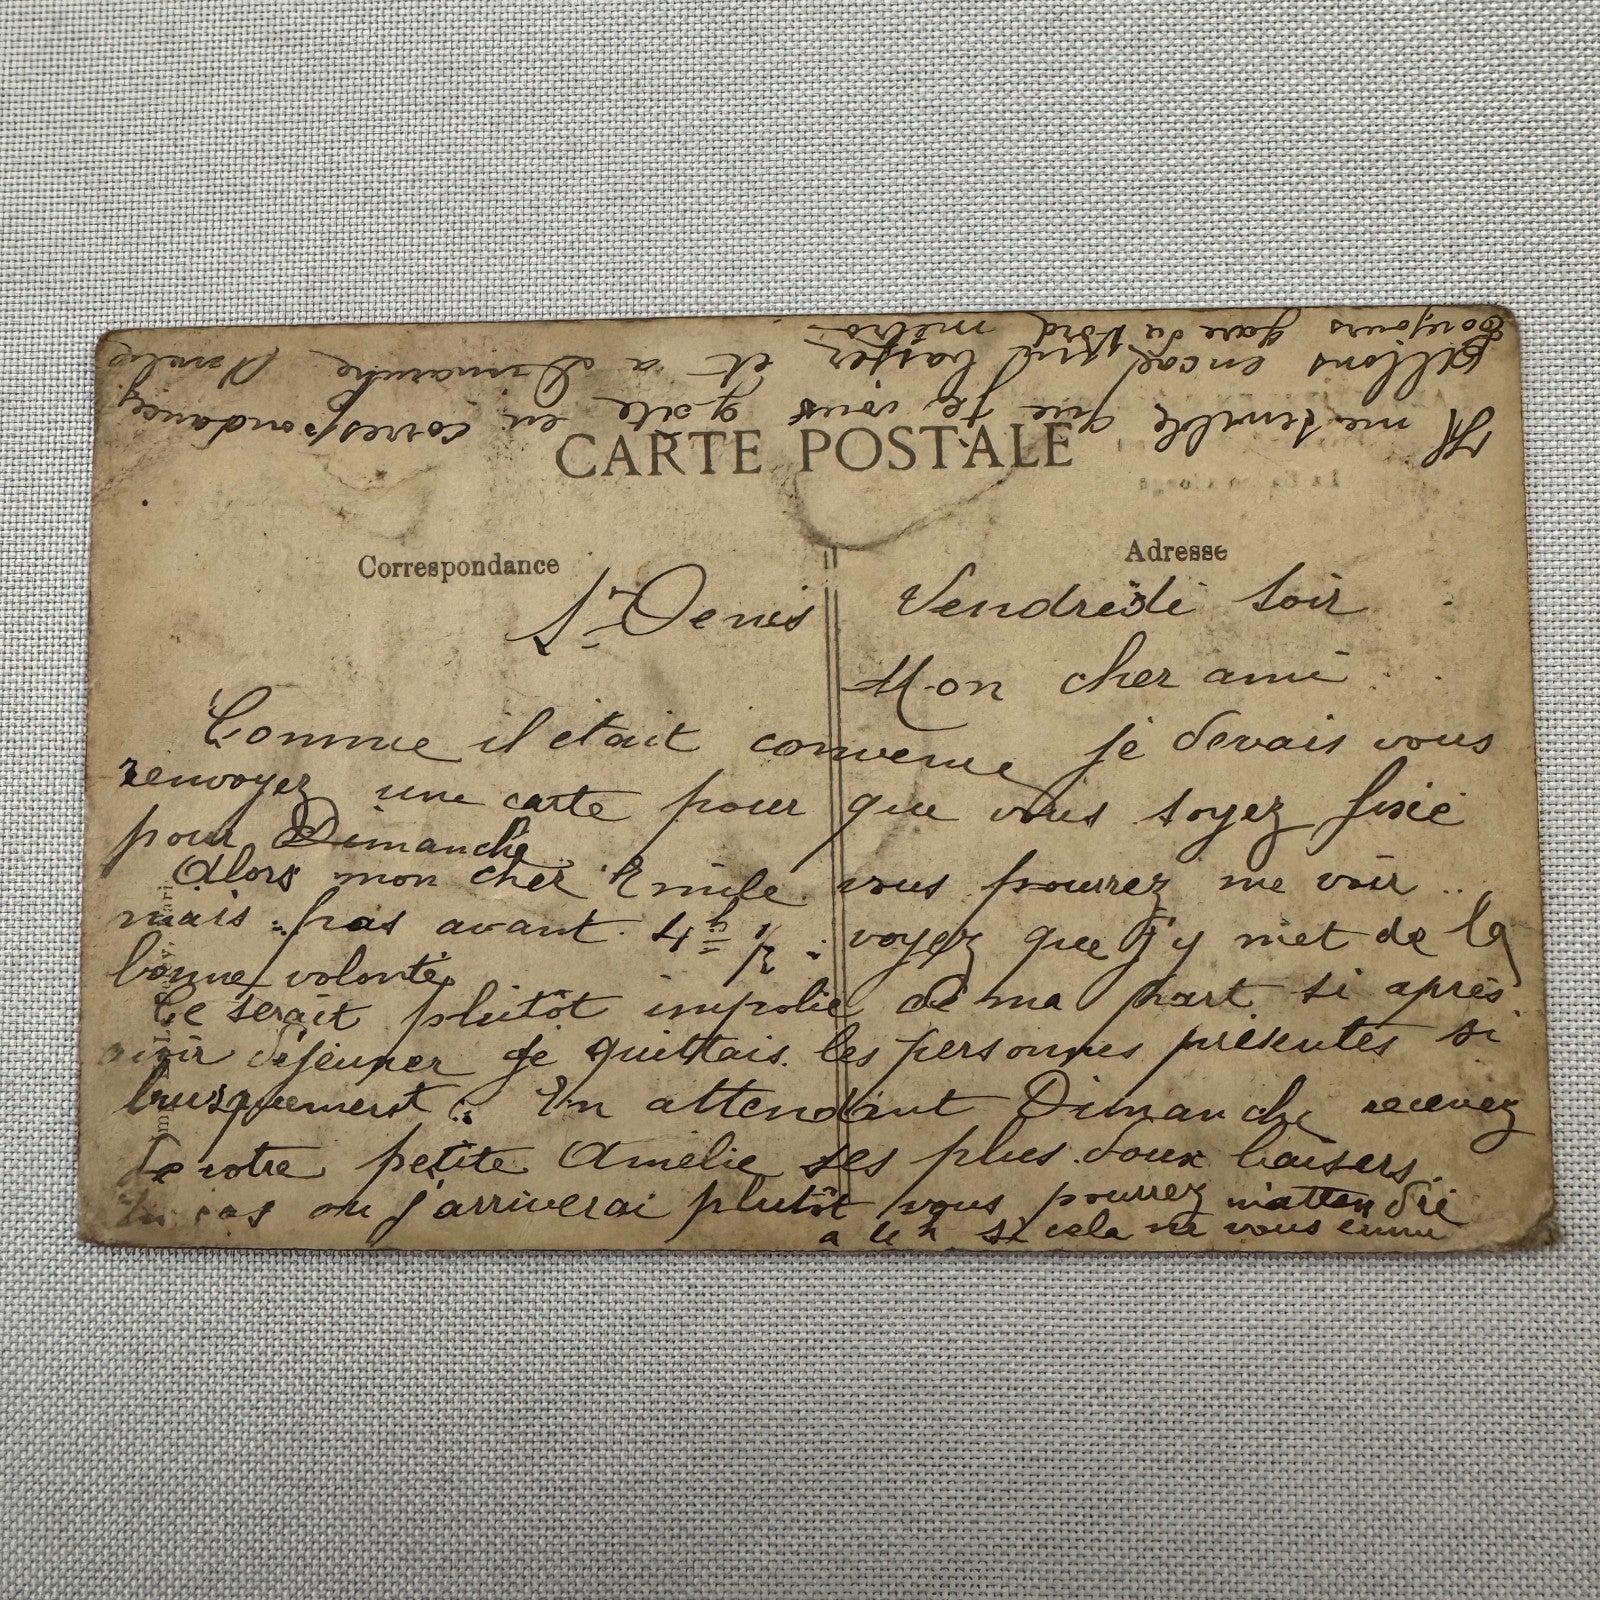 CARTE POSTALE
Correspondance
Adresse
St Denis Vendredi soir
Mon cher ami
Comme il était convenue je devais vous
renvoyez une carte pour que vous soyez fixié
pour Dimanche
Alors mon cher Emile vous pourrez me voir ..
mais pas avant 4h 1/2 voyez que j'y met de la
bonne volonté
Ce serait plutôt impolie de ma part si après
avoir déjeuner je quittais les personnes présentes si
brusquement. En attendant Dimanche recevez
de votre petite Amélie ses plus doux baisers.
au cas ou j'arriverai plutôt vous pourrez m'attendre
a 4h si cela ne vous ennu
Il me semble que je vous gate en correspondance
Allons encore un baiser et a Dimanche Amélie
Toujours gare du Nord métro